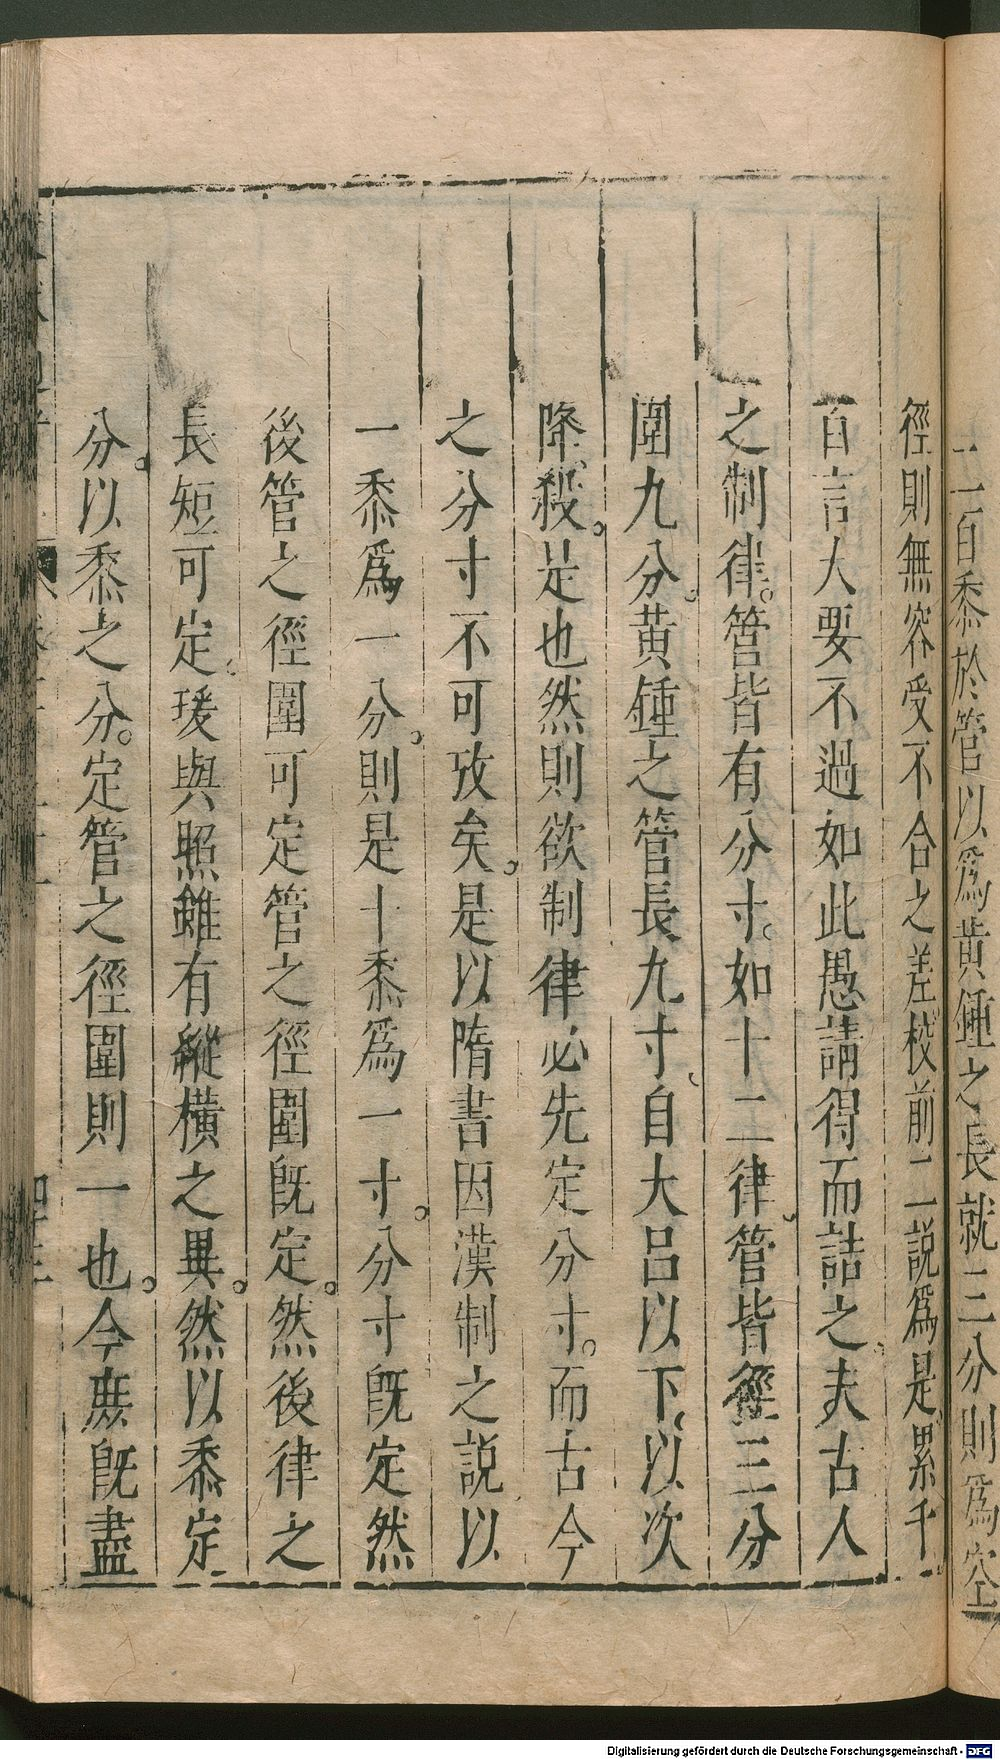 二百黍於管以爲黄鍾之長就三分則爲空
徑則無容受不合之差校前二說爲是累千
百言大要不過如此愚請得而詰之夫古人
之制律。管皆有分寸。如十二律管皆徑三分
圍九分。黄鍾之管長九寸、自大呂以下、以次
降殺。是也然則欲制律必先定分寸。而古今
之分寸不可攷矣。是以隋書因漢制之説以
一黍爲一分。則是十黍爲一寸。分寸旣定然
後管之徑圍可定管之徑圍旣定。然後律之
長短可定。瑗與照雖有縱橫之異。然以黍定
分。以黍之分。定管之徑圍則一也。今庶旣盡
Digitalisierung gefördert durch die Deutsche Forschungsgemeinschaft - DFG